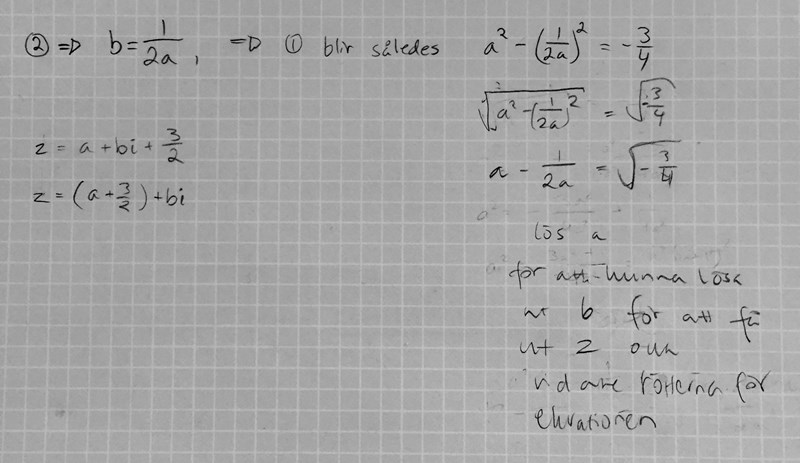 ② => b = 1/2a, => ① blir således a² - (1/2a)² = -3/4
√(a² - (1/2a)²) = √(-3/4)
z = a + bi + 3/2
a - 1/2a = √(-3/4)
z = (a + 3/2) + bi
lös a
för att kunna lösa
ut b för att få
ut z och
vidare rötterna för
ekvationen